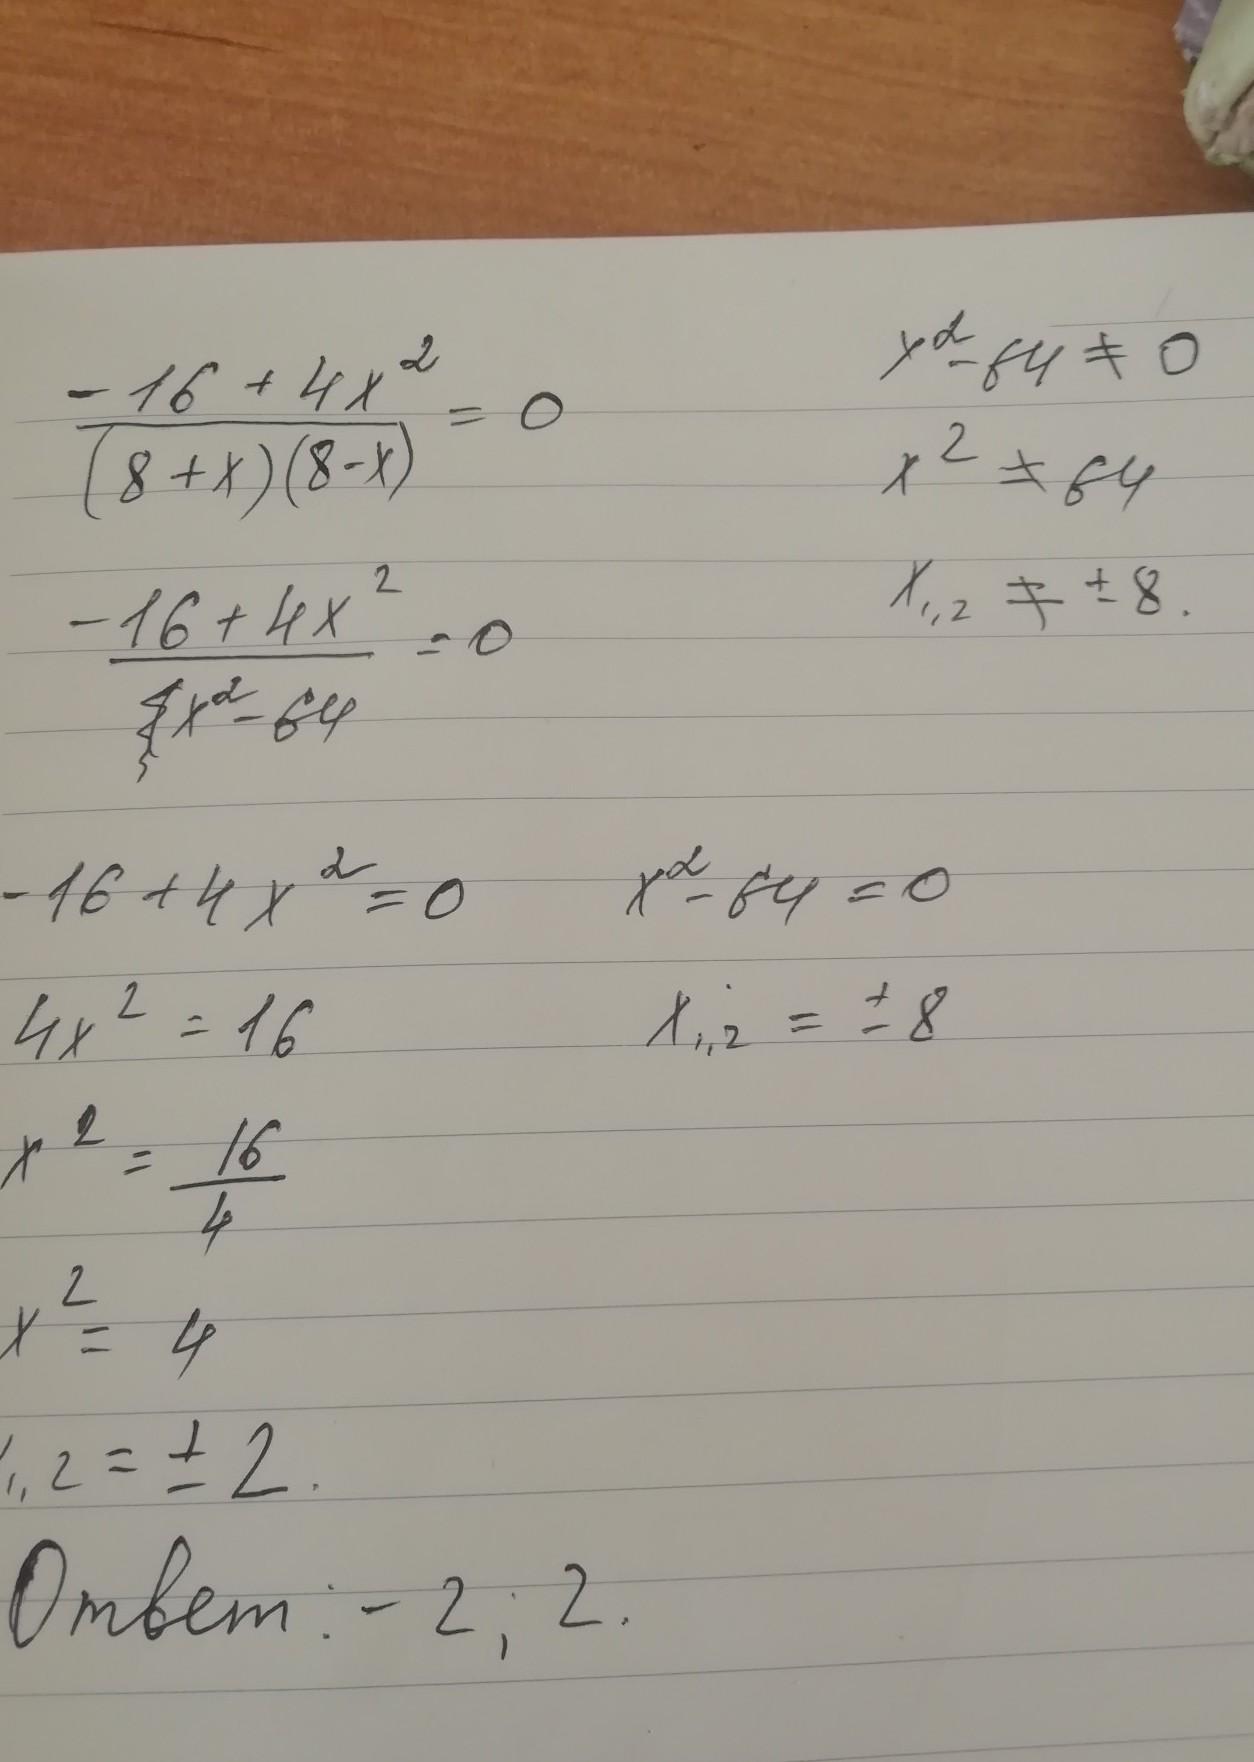 -16 + 4x² / (8+x)(8-x) = 0
x² - 64 ≠ 0
x² ≠ 64
x₁,₂ ≠ ± 8.
-16 + 4x² / x² - 64 = 0
-16 + 4x² = 0
x² - 64 = 0
4x² = 16
x₁,₂ = ± 8
x² = 16/4
x² = 4
₁,₂ = ± 2.
Ответ: -2; 2.